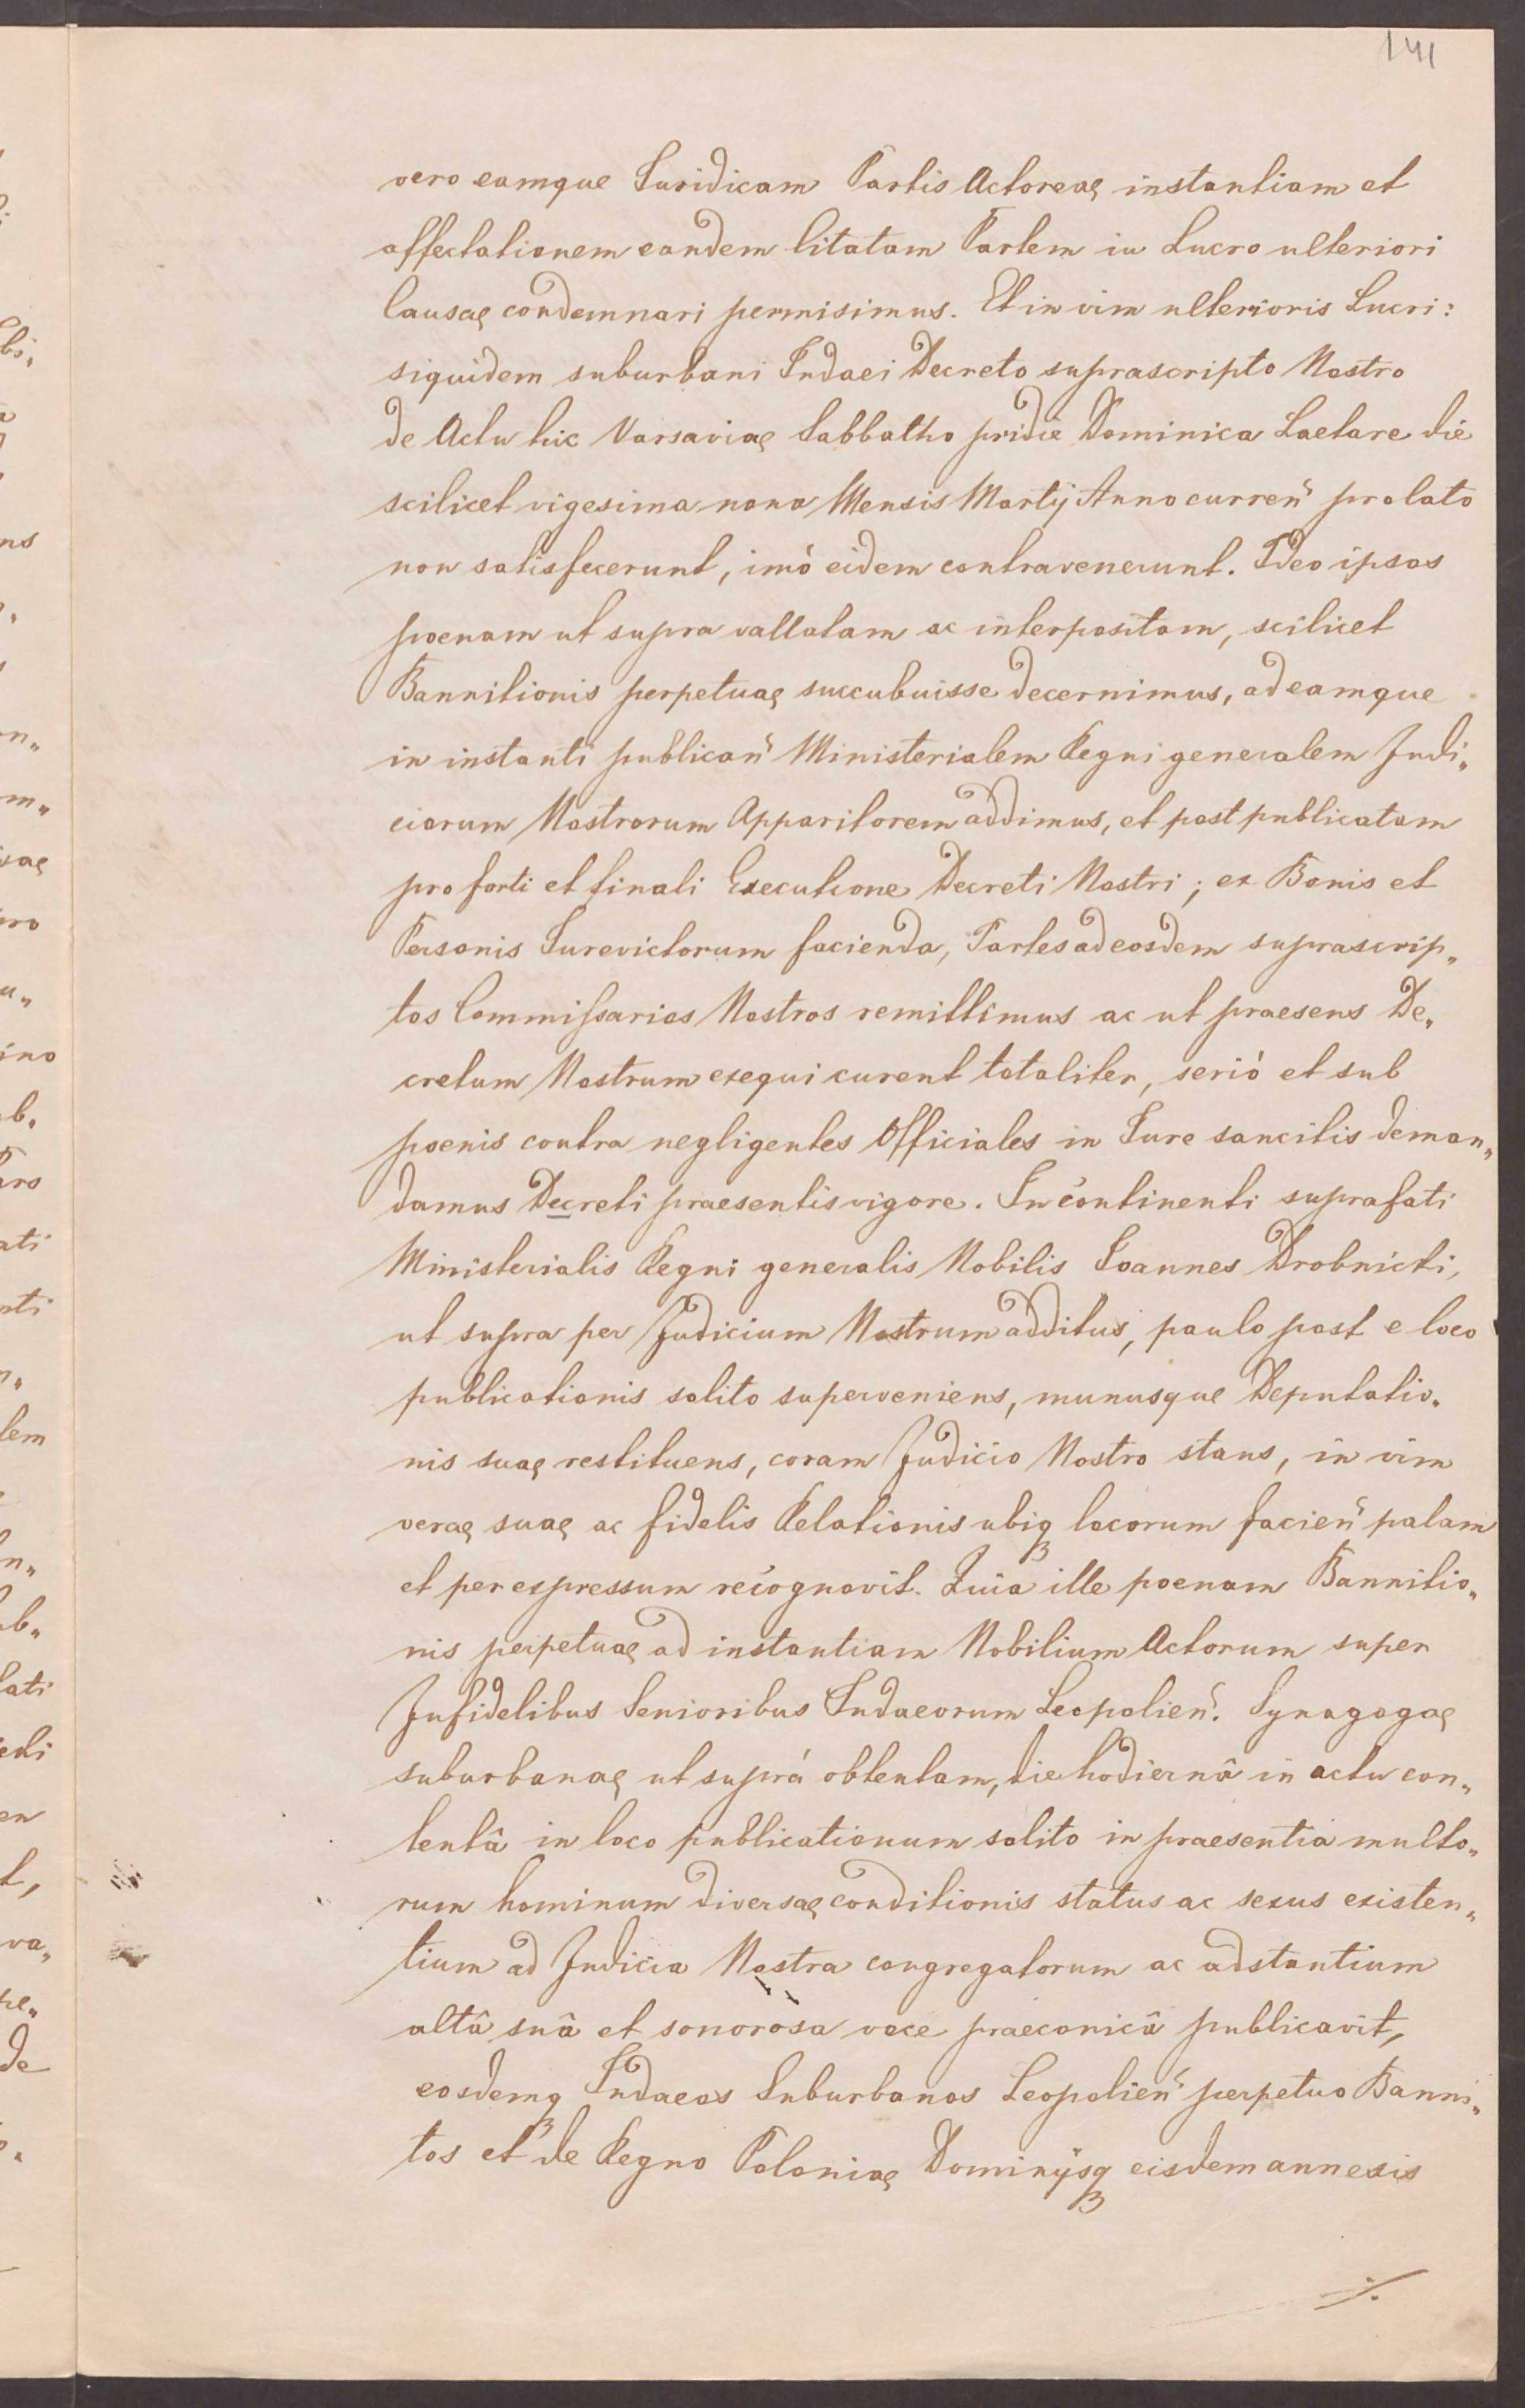 141
vero eamque Juridicam Partis Actoreae instantiam et
affectationem eandem Citatam Partem in Lucro ulteriori
Causae condemnari permisimus. Et in vim ulterioris Lucri:
siquidem suburbani Judaei Decreto suprascripto Nostro
de Actu hic Varsaviae Sabbatho pridie Dominica Laetare die
scilicet vigesima nona Mensis Martij Anno curren̄ prolato
non satisfecerunt, imò eidem contravenerunt. Ideo ipsos
poenam ut supra vallatam ac interpositam, scilicet
Bannitionis perpetuae succubuisse decernimus, ad eamque
in instanti publican̄ Ministerialem Regni generalem Judi„
ciorum Nostrorum Apparitorem addimus, et post publicatam
pro forti et finali Executione Decreti Nostri; ex Bonis et
Personis Jurevictorum facienda, Partes ad eosdem suprascrip„
tos Commissarios Nostros remittimus ac ut praesens De„
cretum Nostrum exequi curent totaliter, seriò et sub
poenis contra negligentes Officiales in Jure sancitis deman„
damus Decreti praesentis vigore. In continenti suprafati
Ministerialis Regni generalis Nobilis Joannes Drobnicki,
ut supra per Judicium Nostrum additus, paulo post e loco
publicationis solito superveniens, munusque Deputatio„
nis suae restituens, coram Judicio Nostro stans, in vim
verae suae ac fidelis Relationis ubiqꝫ locorum facien̄ palam
et per expressum recognovit. Quia ille poenam Bannitio„
nis perpetuae ad instantiam Nobilium Actorum super
Infidelibus Senioribus Judaeorum Leopolien̄. Synagogae
suburbanae ut suprá obtentam, die hodiernâ in actu con„
tentâ in loco publicationum solito in praesentia multo„
rum hominum diversae conditionis status ac sexus existen„
tium ad Judicia Nostra congregatorum ac adstantium
altâ suâ et sonorosa voce praeconicâ publicavit,
eosdemqꝫ Judaeos Suburbanos Leopolien̄ perpetuo Banni„
tos et de Regno Poloniae Dominijsqꝫ eisdem annexis
./.